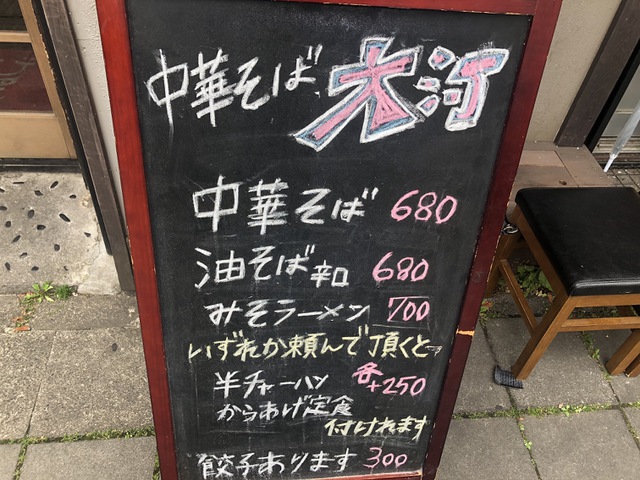 中華そば 大河
中華そば 680
油そば 辛口 680
みそラーメン 700
いずれか頼んで頂くと
半チャーハン 各+250
からあげ定食
付けれます
餃子あります 300